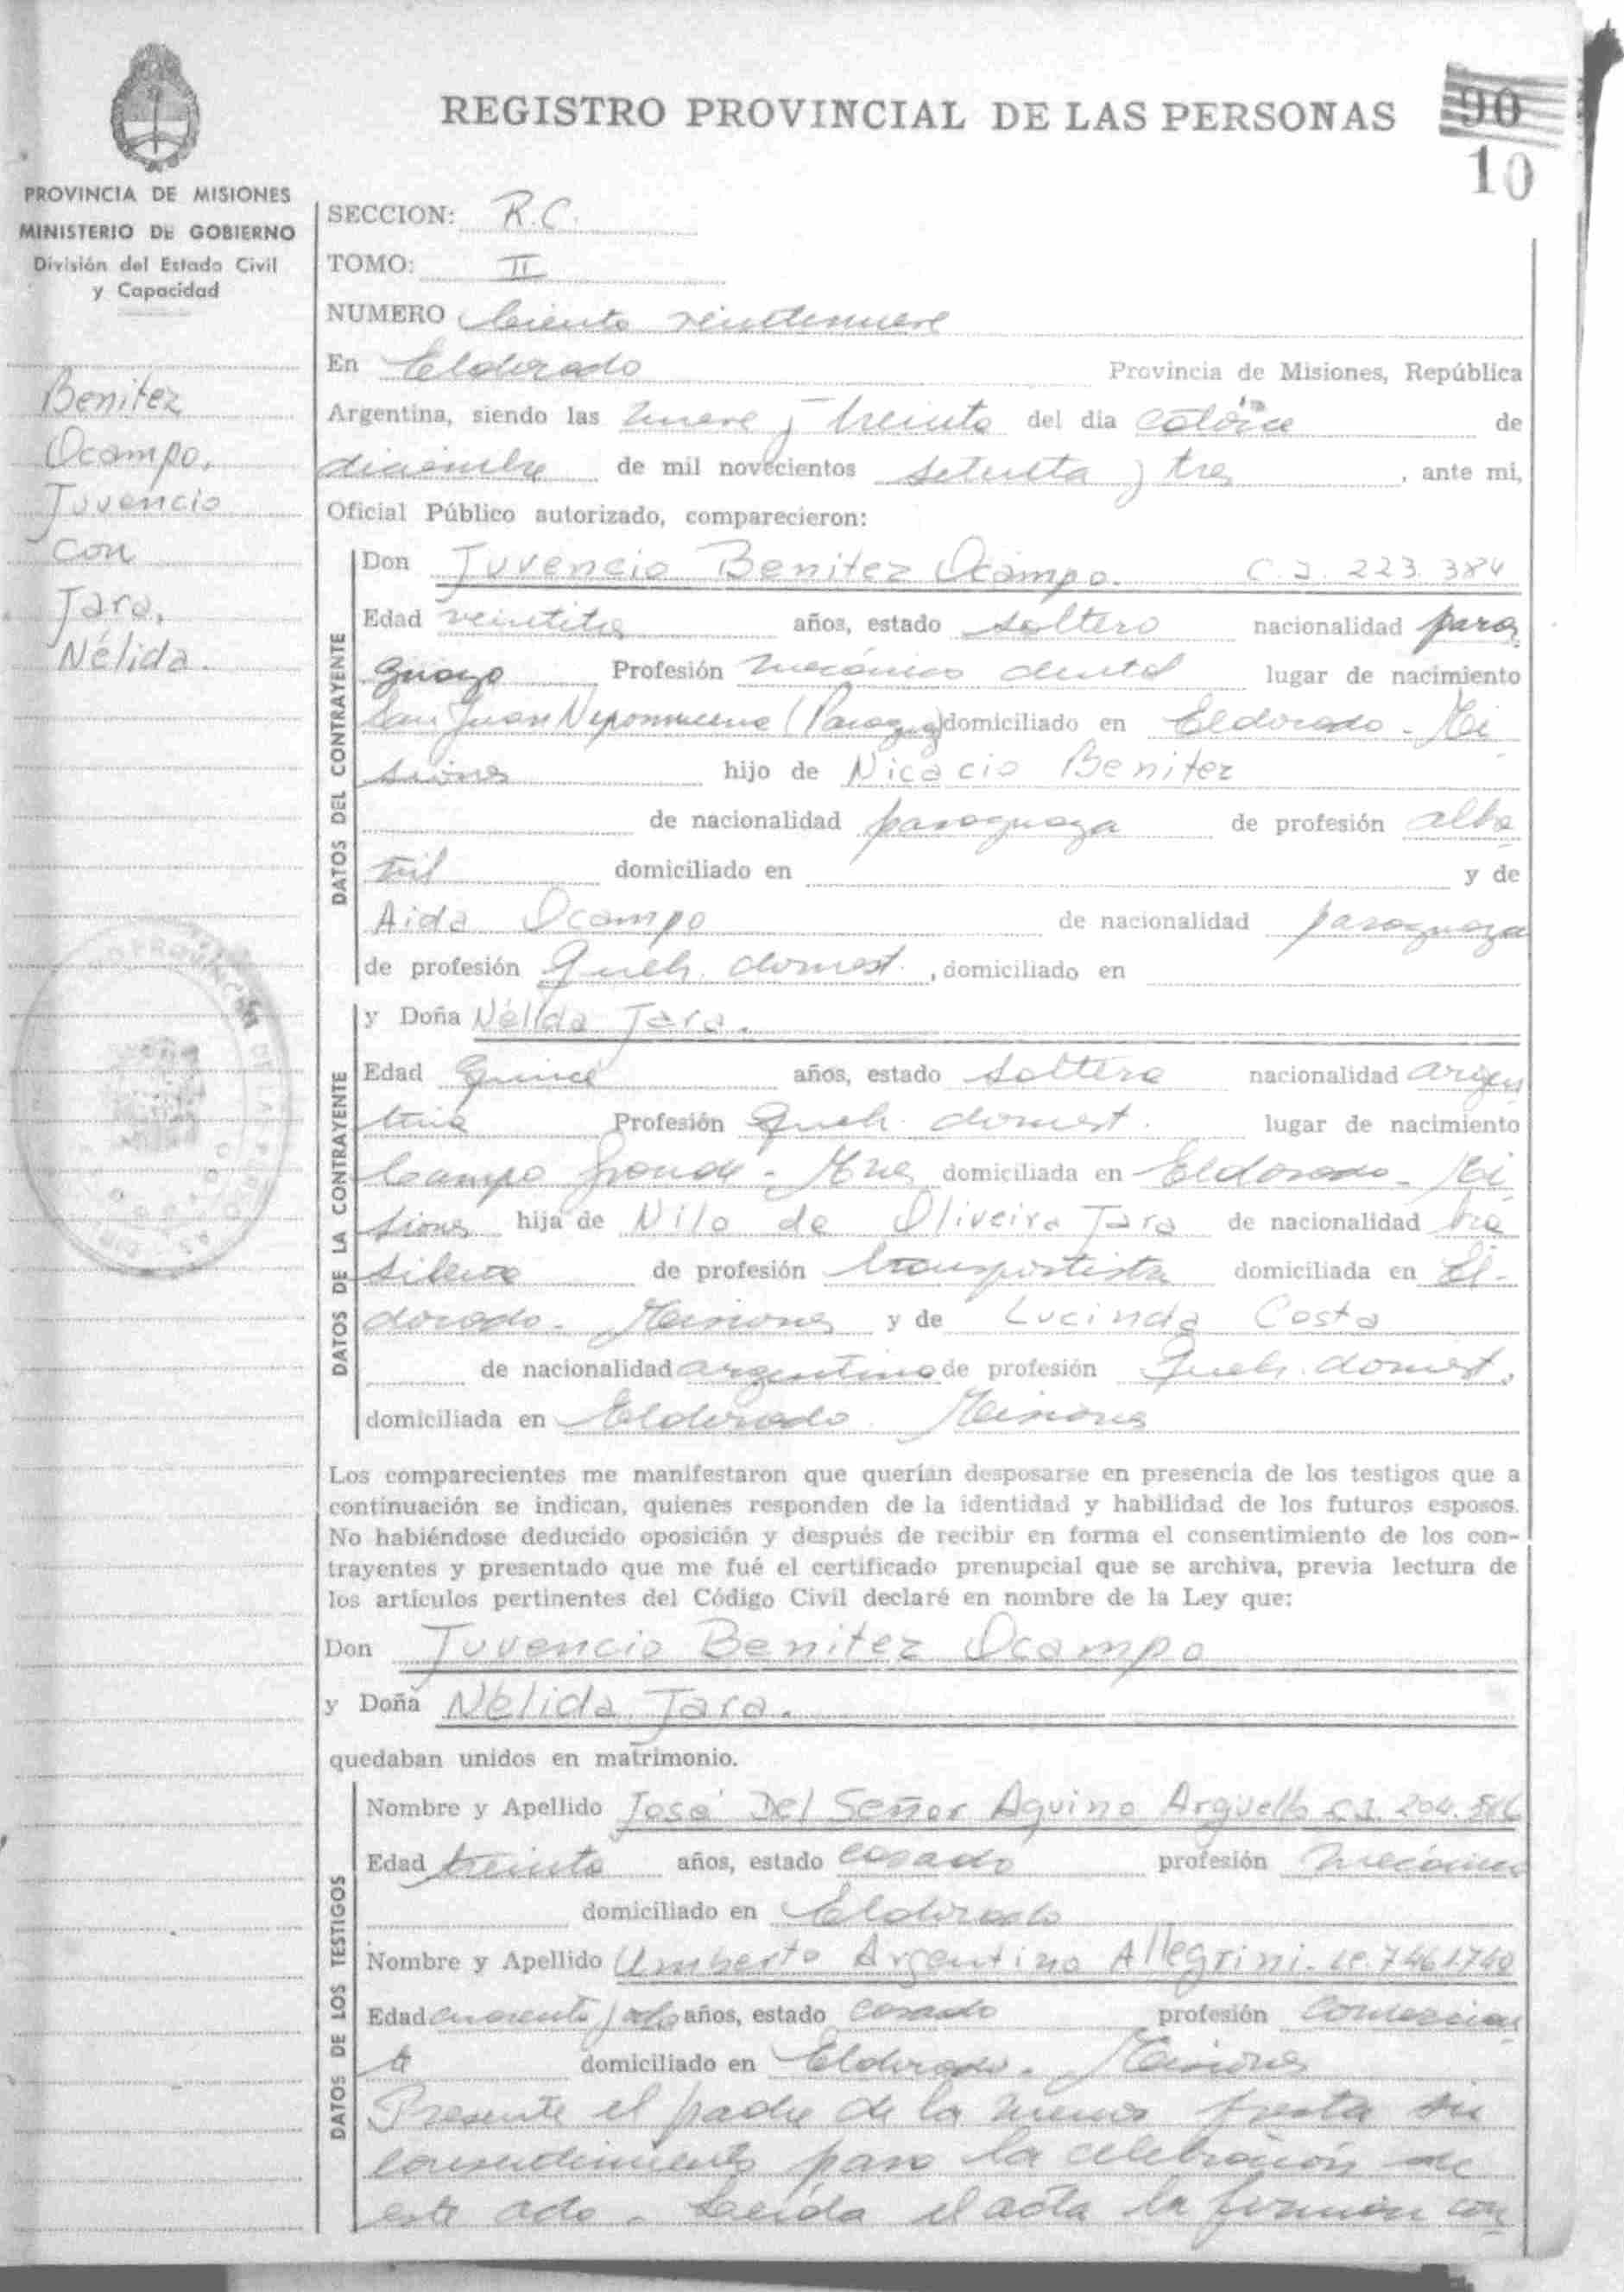 REGISTRO PROVINCIAL DE LAS PERSONAS
90
10
PROVINCIA DE MISIONES
MINISTERIO DE GOBIERNO
División del Estado Civil
y Capacidad
Benitez
Ocampo,
Juvencio
con
Jara,
Nélida.
SECCION: R.C.
TOMO: II
NUMERO Ciento veintinueve
En Eldorado Provincia de Misiones, República
Argentina, siendo las nueve y treinta del dia catorce de
diciembre de mil novecientos setenta y tres, ante mi,
Oficial Público autorizado, comparecieron:
DATOS DEL CONTRAYENTE
Don Juvencio Benitez Ocampo. C.I. 223.384
Edad veintitres años, estado soltero nacionalidad para
guayo Profesión mecánico dental lugar de nacimiento
San Juan Nepomuceno (Paraguay) domiciliado en Eldorado - Mi
siones hijo de Nicacio Benitez
de nacionalidad paraguaya de profesión alba
ñil domiciliado en y de
Aida Ocampo de nacionalidad paraguaya
de profesión Queh. domest., domiciliado en
DATOS DE LA CONTRAYENTE
y Doña Nélida Jara.
Edad quince años, estado soltera nacionalidad argen
tina Profesión Queh. domest. lugar de nacimiento
Campo Grande - Mnes domiciliada en Eldorado - Mi
siones hija de Nilo de Oliveira Jara de nacionalidad bra
silera de profesión transportista domiciliada en El-
dorado - Misiones y de Lucinda Costa
de nacionalidad argentina de profesión Queh. domest.
domiciliada en Eldorado Misiones
Los comparecientes me manifestaron que querían desposarse en presencia de los testigos que a
continuación se indican, quienes responden de la identidad y habilidad de los futuros esposos.
No habiéndose deducido oposición y después de recibir en forma el consentimiento de los con-
trayentes y presentado que me fué el certificado prenupcial que se archiva, previa lectura de
los artículos pertinentes del Código Civil declaré en nombre de la Ley que:
Don Juvencio Benitez Ocampo
y Doña Nélida Jara.
quedaban unidos en matrimonio.
DATOS DE LOS TESTIGOS
Nombre y Apellido José Del Señor Aquino Argüello C.I. 204.
Edad treinta años, estado casado profesión mecánico
domiciliado en Eldorado
Nombre y Apellido Umberto Argentino Allegrini - LE. 7461740
Edad cuarenta y ocho años, estado casado profesión comercian
te domiciliado en Eldorado - Misiones
Presente el padre de la menor presta su
consentimiento para la celebración de
este acto - Leída el acta la firman con